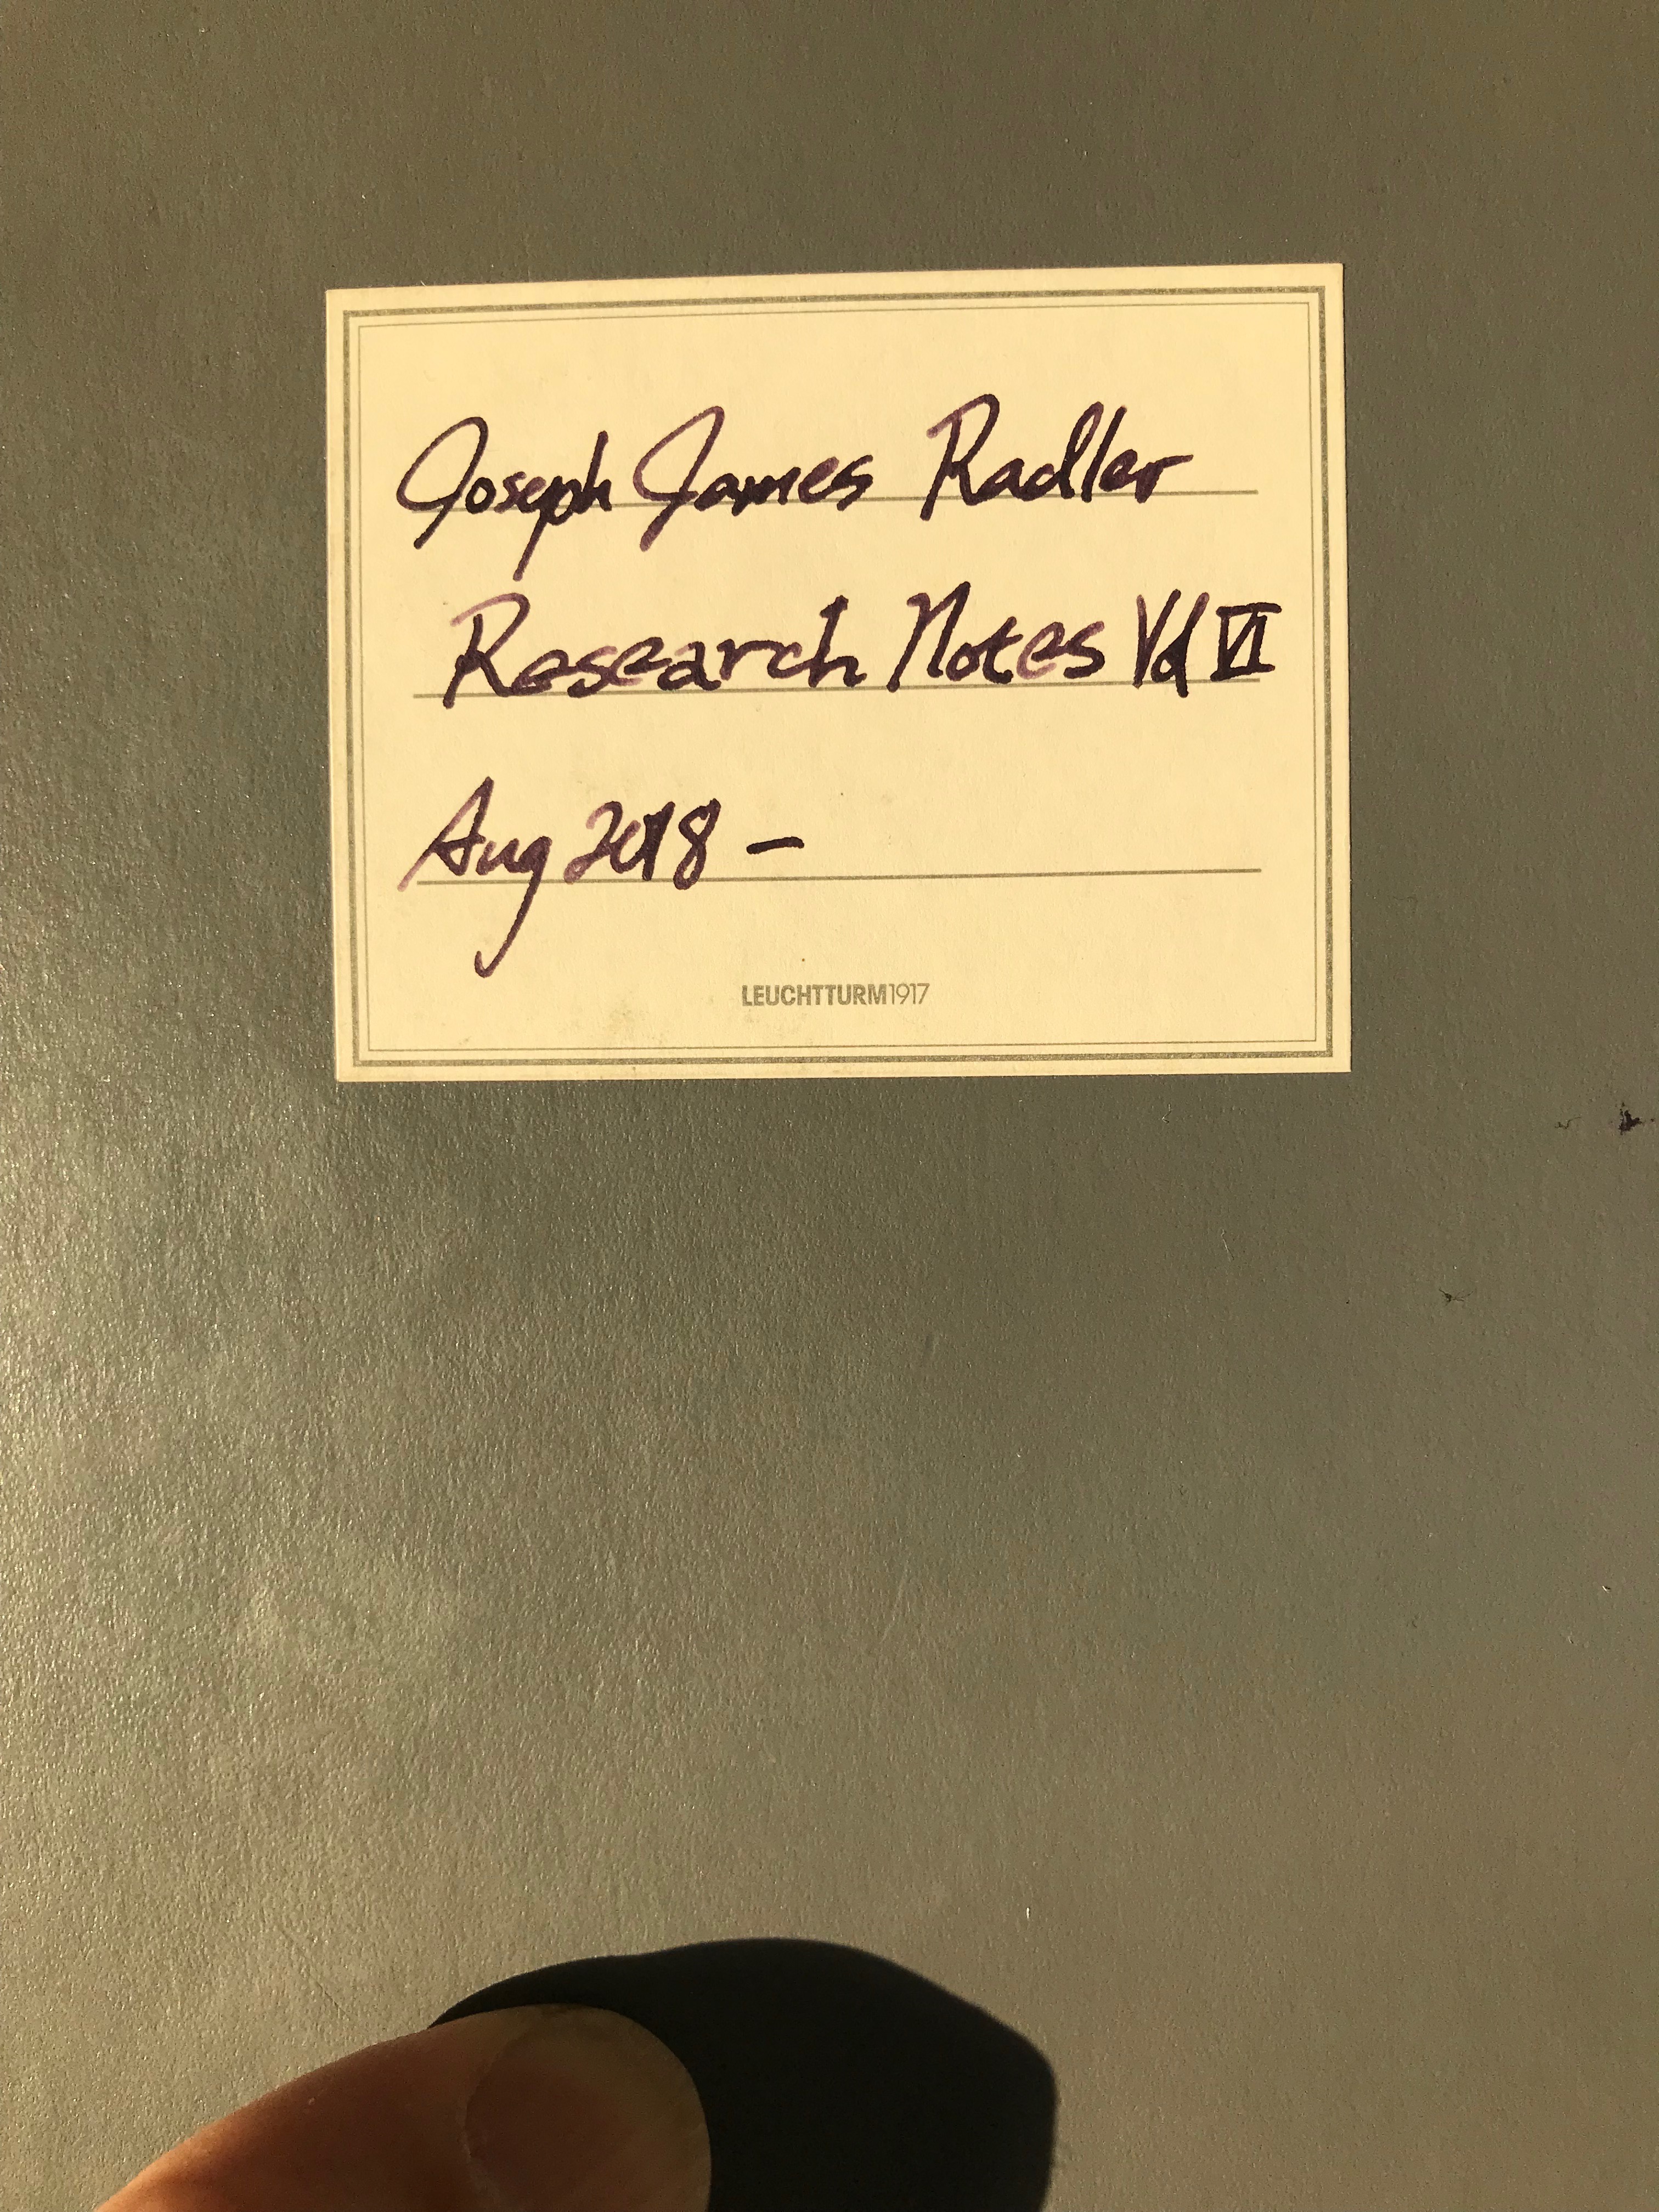 Joseph James Radler
Research Notes Vol VI
Aug 2018 –
LEUCHTTURM1917